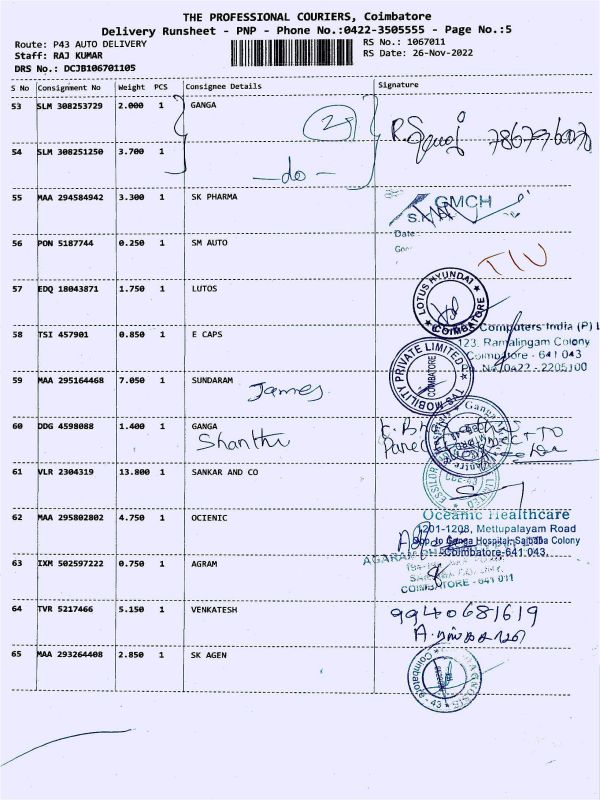 THE PROFESSIONAL COURIERS, Coimbatore
Delivery Runsheet - PNP - Phone No.:0422-3505555 - Page No.:5
Route: P43 AUTO DELIVERY
RS No.: 1067011
Staff: RAJ KUMAR
RS Date: 26-Nov-2022
DRS No.: DCJB106701105
S No Consignment No Weight PCS Consignee Details Signature
53 SLM 308253729 2.000 1 GANGA
54 SLM 308251250 3.700 1
-do-
55 MAA 294584942 3.300 1 SK PHARMA
GMCH
Date
56 PON 5187744 0.250 1 SM AUTO
57 EDQ 18043871 1.750 1 LUTOS
LOTUS HYUNDAI
COIMBATORE
58 TSI 457901 0.850 1 E CAPS
Computers India (P) L
123, Ramalingam Colony
Coimbatore - 641 043
Ph. No. 0422 - 2205100
TVS MOBILITY PRIVATE LIMITED
COIMBATORE
59 MAA 295164468 7.050 1 SUNDARAM
James
60 DDG 4598088 1.400 1 GANGA
Shanthi
Ganga
61 VLR 2304319 13.800 1 SANKAR AND CO
ESSILOR
LIMITED
62 MAA 295802802 4.750 1 OCIENIC
Oceanic Healthcare
1201-1208, Mettupalayam Road
Opp to Ganga Hospital, Saibaba Colony
Coimbatore-641 043.
63 IXM 502597222 0.750 1 AGRAM
AGARAM
COIMBATORE - 641 011
64 TVR 5217466 5.150 1 VENKATESH
9940681619
65 MAA 293264408 2.850 1 SK AGEN
Coimbatore - 43